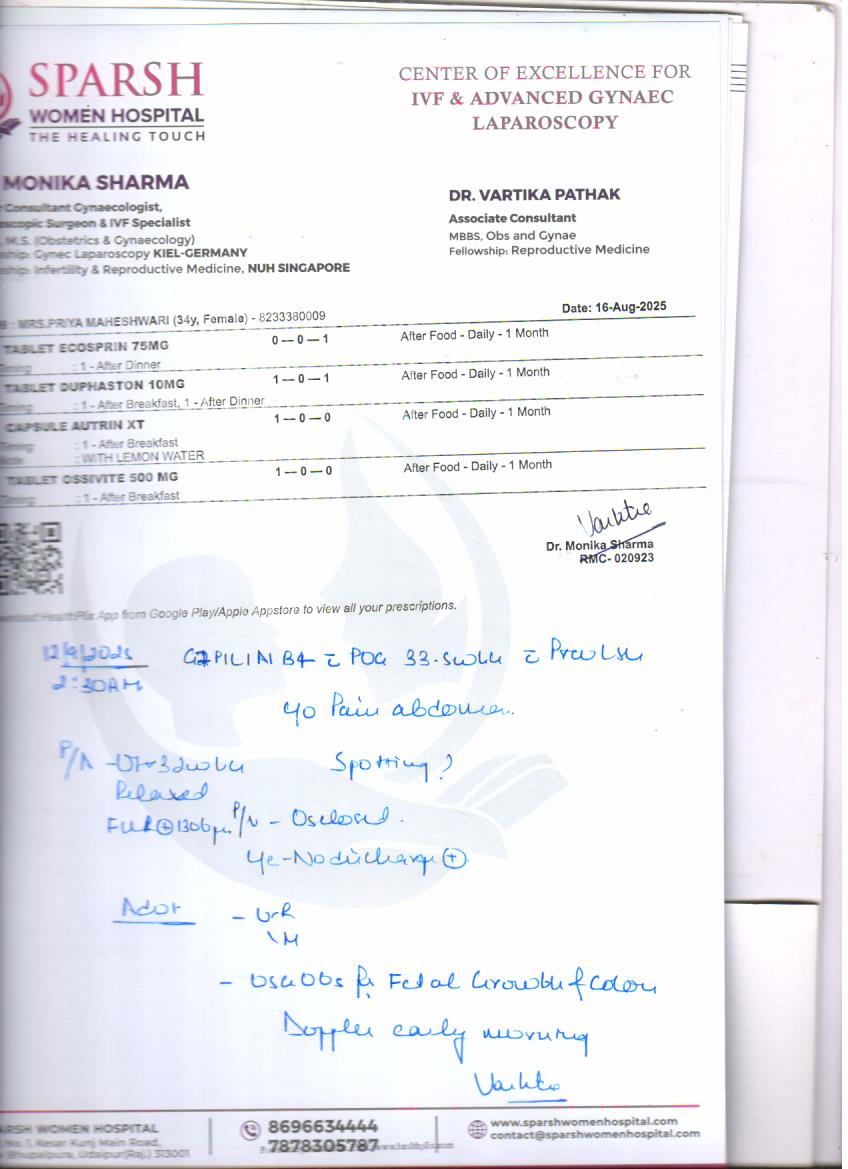 SPARSH
WOMEN HOSPITAL
THE HEALING TOUCH
CENTER OF EXCELLENCE FOR
IVF & ADVANCED GYNAEC
LAPAROSCOPY
MONIKA SHARMA
Consultant Gynaecologist,
scopic Surgeon & IVF Specialist
M.S. (Obstetrics & Gynaecology)
ship: Gynec Laparoscopy KIEL-GERMANY
ship: Infertility & Reproductive Medicine, NUH SINGAPORE
DR. VARTIKA PATHAK
Associate Consultant
MBBS, Obs and Gynae
Fellowship: Reproductive Medicine
: MRS.PRIYA MAHESHWARI (34y, Female) - 8233380009
Date: 16-Aug-2025
TABLET ECOSPRIN 75MG 0 — 0 — 1 After Food - Daily - 1 Month
Timing : 1 - After Dinner
TABLET DUPHASTON 10MG 1 — 0 — 1 After Food - Daily - 1 Month
Timing : 1 - After Breakfast, 1 - After Dinner
CAPSULE AUTRIN XT 1 — 0 — 0 After Food - Daily - 1 Month
Timing : 1 - After Breakfast
Note : WITH LEMON WATER
TABLET OSSIVITE 500 MG 1 — 0 — 0 After Food - Daily - 1 Month
Timing : 1 - After Breakfast
Vartika
Dr. Monika Sharma
RMC- 020923
App from Google Play/Apple Appstore to view all your prescriptions.
12/9/2025
2:30AM
POG 33.5
Pain abdomen.
P/A
Spotting
Relaxed
P/V - Os closed.
No discharge ⊕
- Obs for Fetal Growth & Color
Doppler early morning
Vartika
ARSH WOMEN HOSPITAL
No. 1, Kesar Kunj Main Road,
Bhupalpura, Udaipur(Raj.) 313001
8696634444
7878305787
www.sparshwomenhospital.com
contact@sparshwomenhospital.com